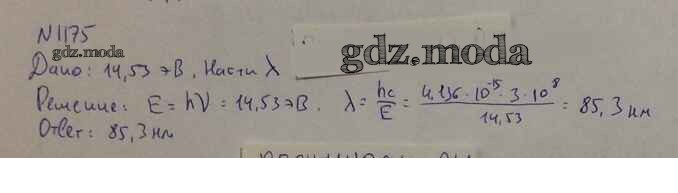 N1175
gdz.moda
gdz.moda
Дано: 14,53 эВ. Найти λ
Решение: E = hν = 14,53 эВ. λ = hc/E = 4,136·10^-15·3·10^8/14,53 = 85,3 нм
Ответ: 85,3 нм